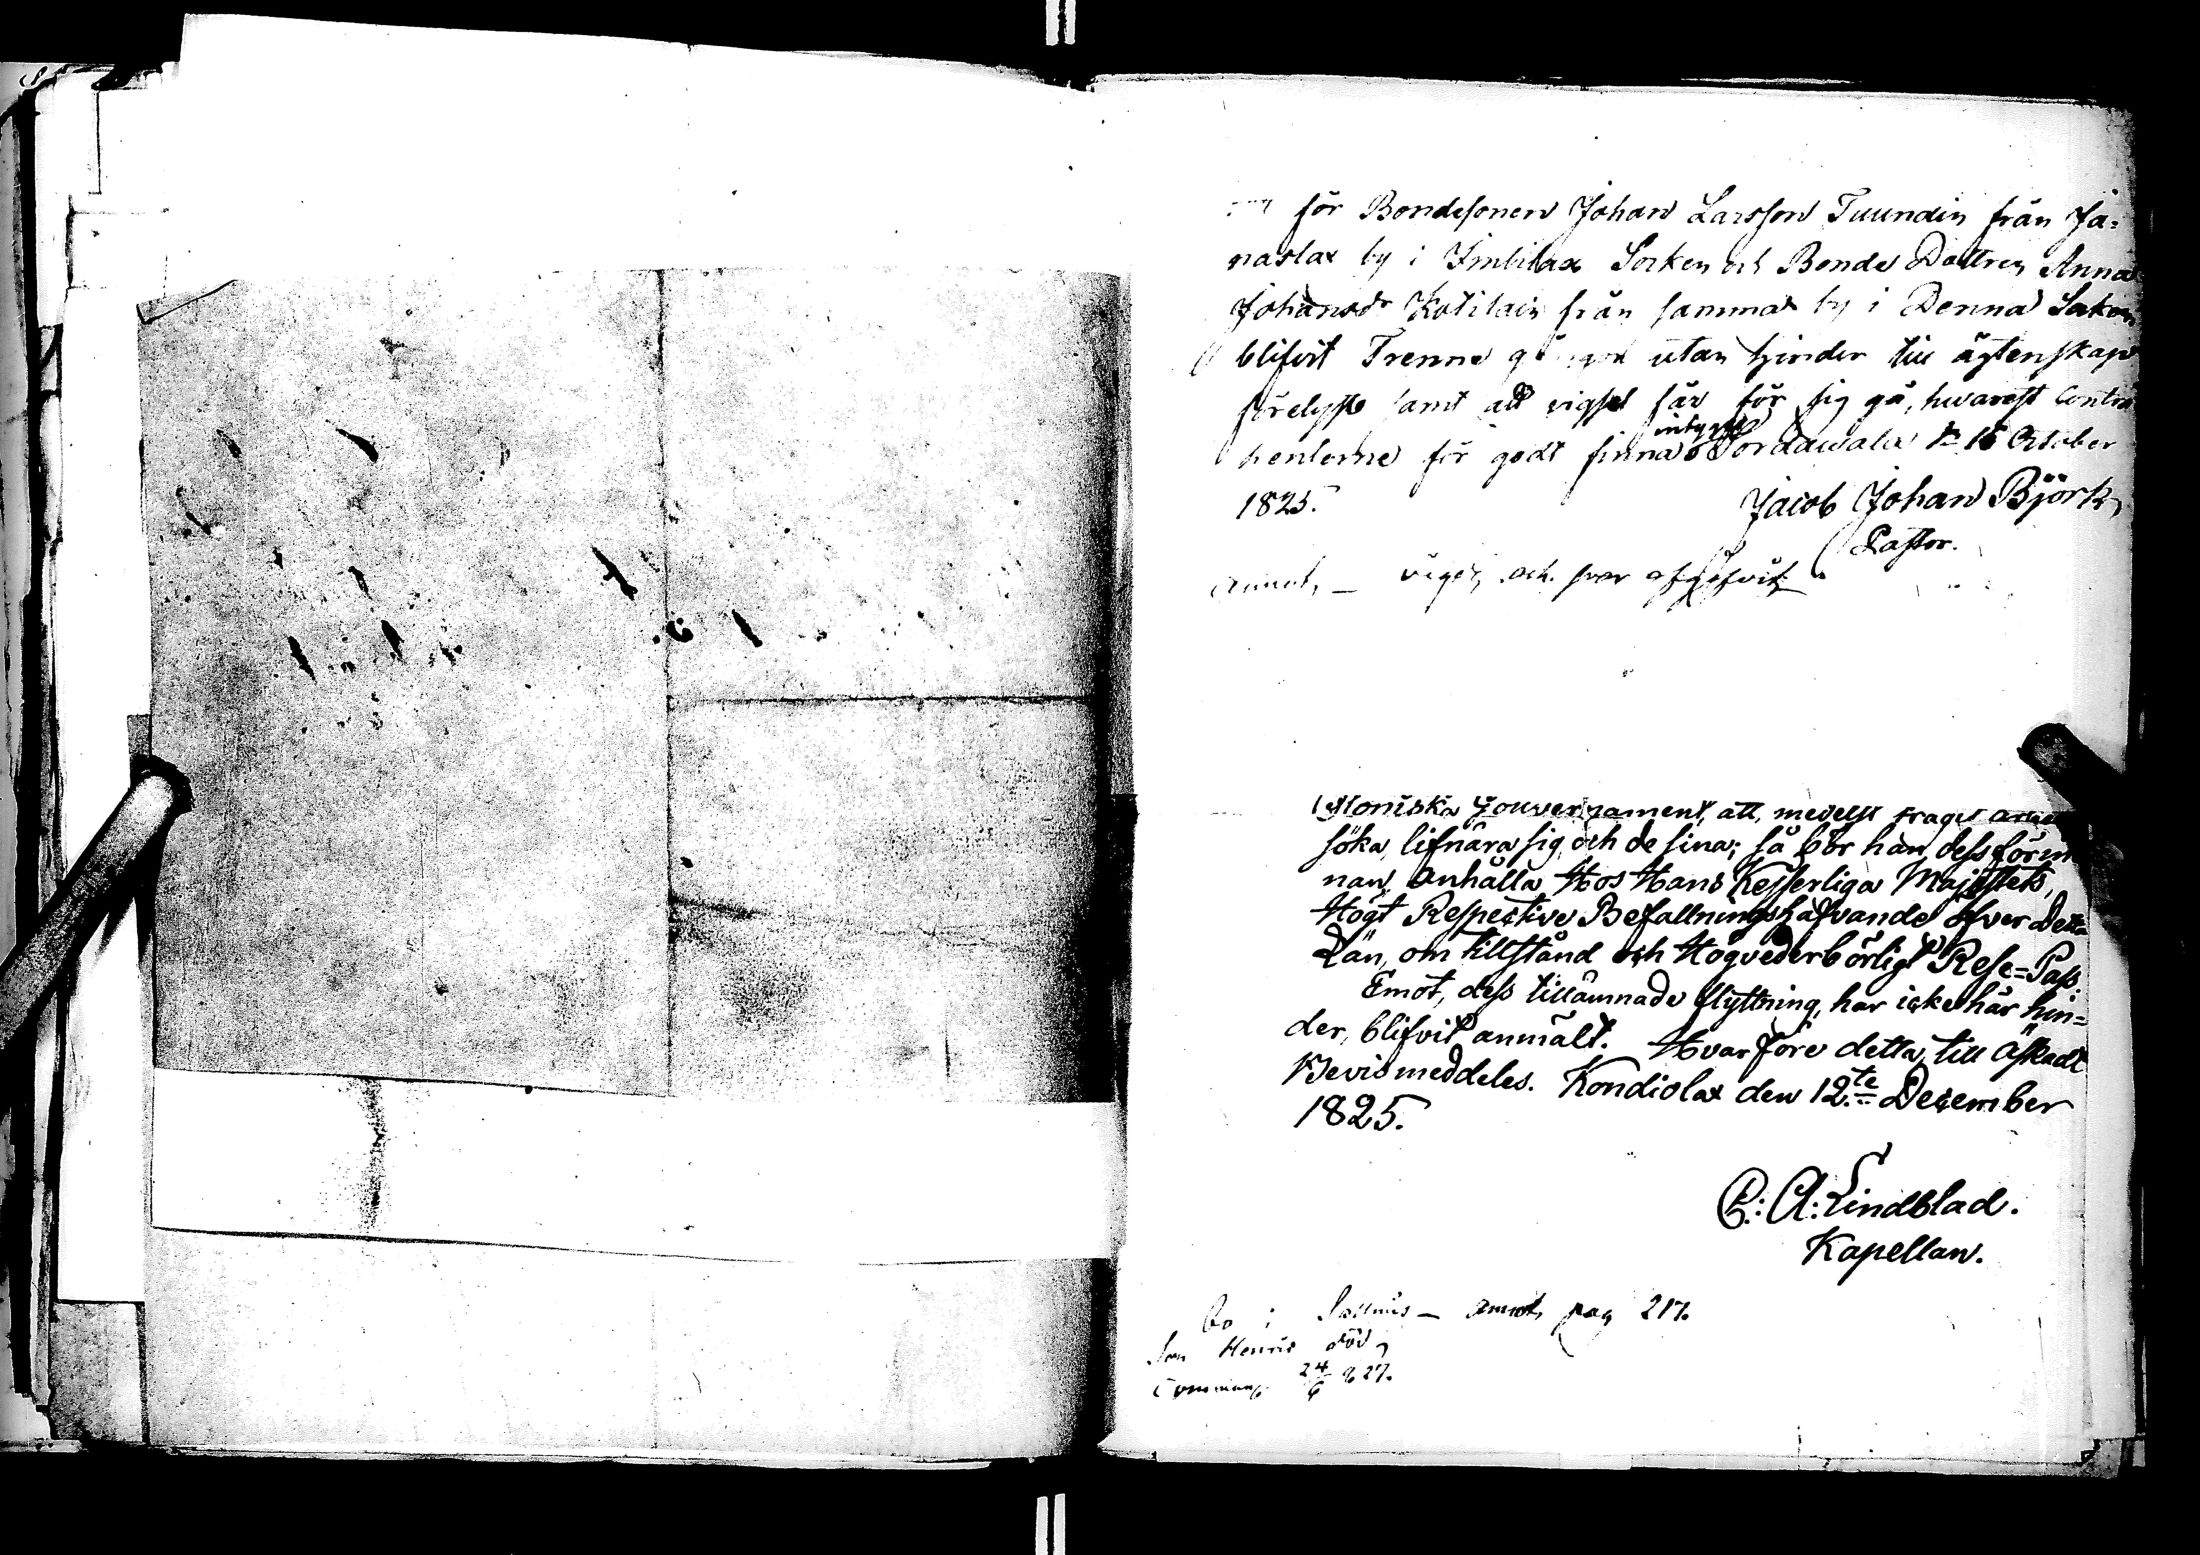 för Bondesonen Johan Larsson Tuundin från Ja-
naslax by i Imbilax Socken och Bonde Dottren Anna
Johansdr Kotilain från samma by i Denna Sokn
blifvit Trenne gånger utan hinder till ägtenskap
förelyste samt att vigsel får för sig gå, hwarest Contra
henterne för godt finna intygas Sordawala d. 16 October
1825.
Jacob Johan Björk
Pastor.
Annot, — vigde, och svar afgifvit
Estoniska Gouvernament, att, medelst
söka, lifnära sig, och de sina; så bör han dessförin-
nan, anhålla Hos Hans Kejserliga Majestets,
Högt Respective Befallningshafvande öfver Detta
Län, om tillstånd och Högvederbörligt Rese=Pass.
Emot, dess tillämnade flyttning, har icke här hin=
der, blifvit anmält. Hvarföre detta, till äskadt
Bevis meddeles. Kondiolax den 12te December
1825.
C: A: Lindblad.
Kapellan.
bo i Salmis — annot, pag 217.
Son Henric död
24/6 827.